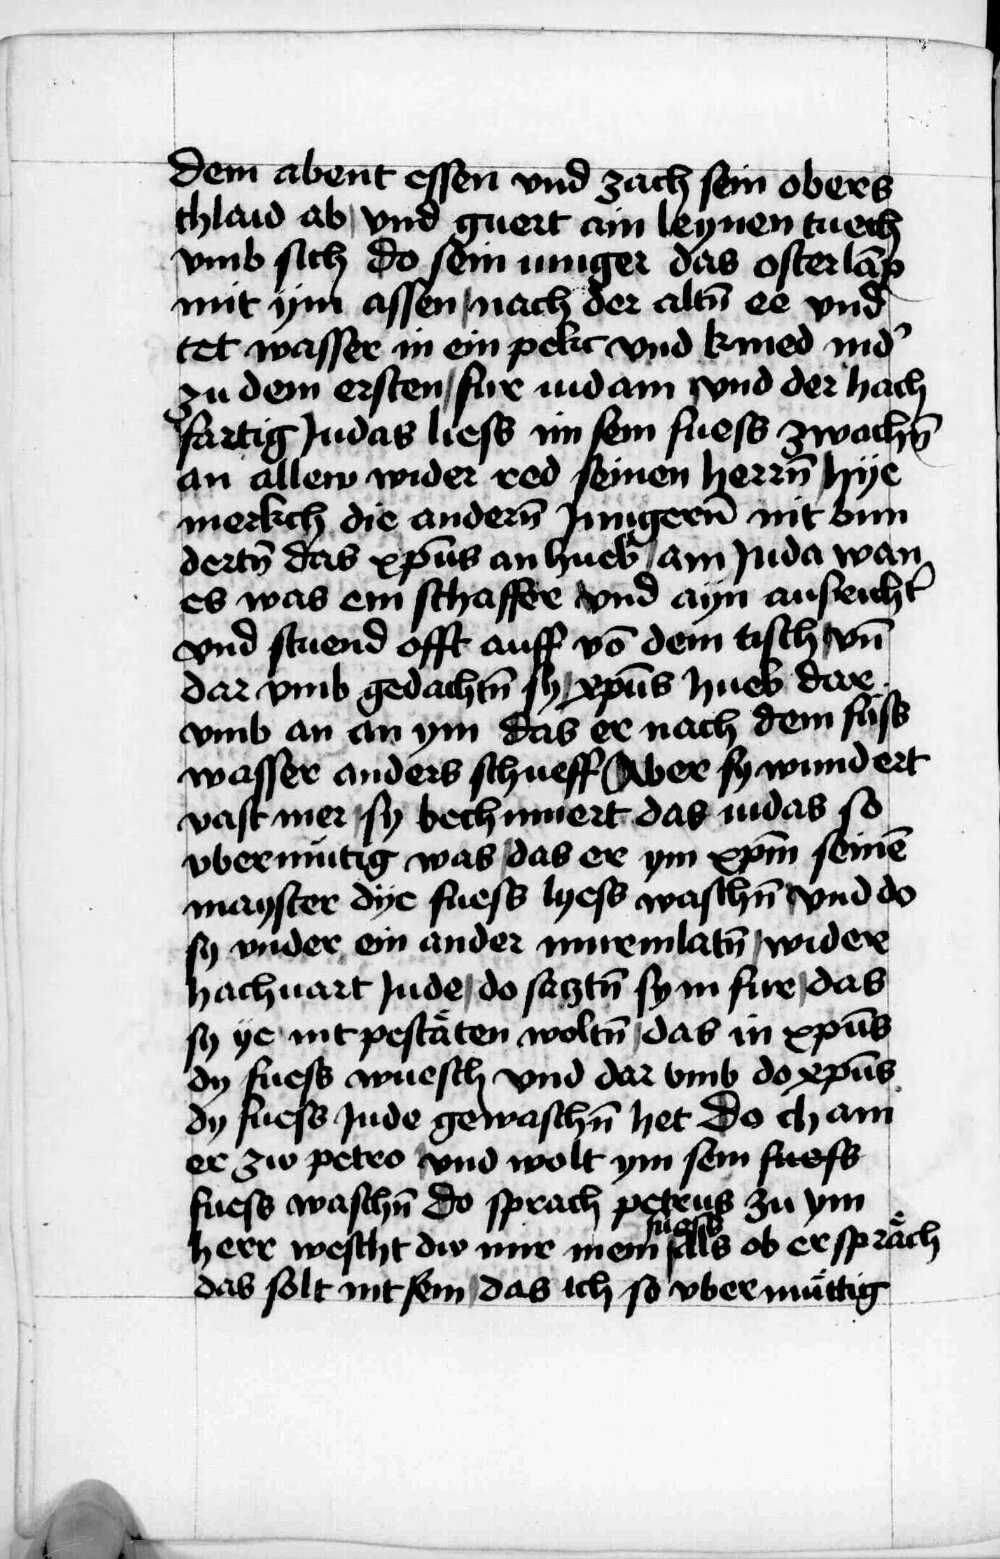 dem abent essen vnd zach sein obers
chlaid ab vnd guert ain leynen tuech
vmb sich do sein iunger das osterlāp
mit ym assen nach der altn̄ ee vnd
tet wasser in ein pekc vnd knied nid'
zu dem ersten fur iudam vnd der hach
fartig Judas liess im sein fuess zwachn̄
an allew wider red seinen herrn̄ hye
merkch die andern̄ Jungern̄ nit bun
dertn̄ das xpūs an hueb am Juda wan
es was ein schaffer vnd ayn ausricht'
vnd stuend offt auff vō dem tisch vn̄
dar vmb gedachtn̄ sy xpūs hueb dar
vmb an an ym das er nach dem fuss
wasser anders schueff Aber sy wundert
vast mer sy bechumert das iudas so
vbermütig was das er ym xpm̄ seinē
mayster dye fuess lyess waschn̄ vnd do
sy vnder ein ander murmlatn̄ wider
hachuart Jude do saztn̄ sy in fur das
sy ye nit pestäten woltn̄ das in xpūs
dy fuess wuesch vnd dar vmb do xpūs
dy fuess Jude gewaschn̄ het Do cham
er zw petro vnd wolt ym sein fuess
fuess waschn̄ Do sprach petrus zu ym
herr wescht dw mir mein fuess Als ob er spräch
das solt nit sein das ich so vbermüttig